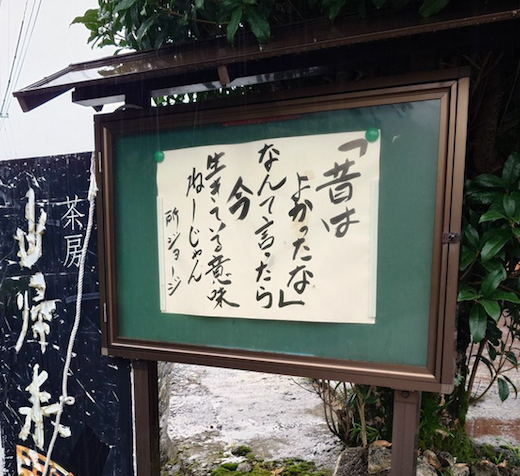 「昔は
よかったな」
なんて言ったら
今
生きている意味
ねーじゃん
所ジョージ
茶房